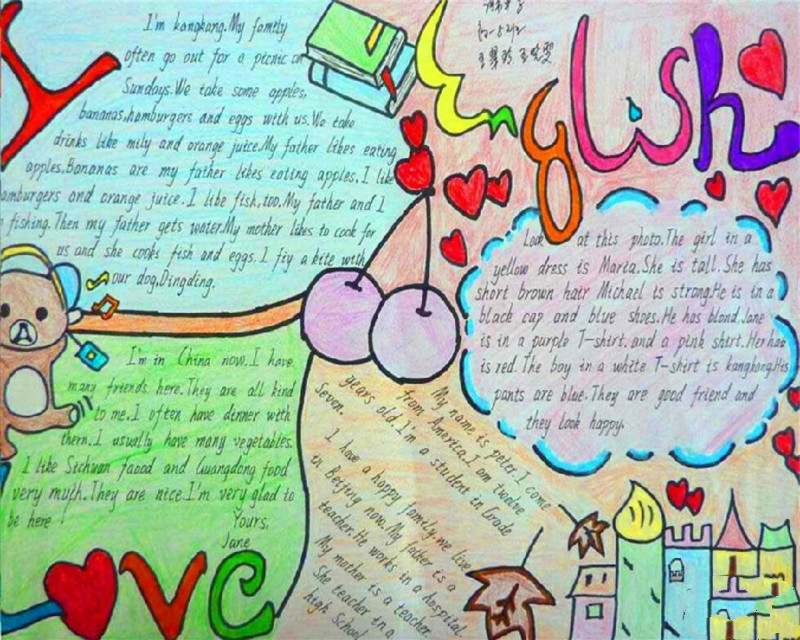 I'm kangkang.My family
often go out for a picnic on
Sundays.We take some apples,
bananas,hamburgers and eggs with us.We take
drinks like mily and orange juice.My father likes eating
apples.Bananas are my father likes eating apples.I like
hamburgers and orange juice.I like fish,too.My father and I
fishing.Then my father gets water.My mother likes to cook for
us and she cooks fish and eggs.I fiy a kite with
our dog,Dingding.
English
Look at this photo.The girl in a
yellow dress is Maria.She is tall.She has
short brown hair Michael is strong.He is in a
black cap and blue shoes.He has blond.Jane
is in a purple T-shirt.and a pink shirt.Her hair
is red.The boy in a white T-shirt is kangkong.His
pants are blue.They are good friend and
they look happy.
I'm in China now.I have
many friends here.They are all kind
to me.I often have dinner with
them.I usually have many vegetables.
I like Sichuan faood and Guangdong food
very myth.They are nice.I'm very glad to
be here
Yours,
Jane
My name is peter.I come
from America.I am twelve
years old.I'm a student in Grade
Seven.
I have a happy family.we live
in Beijing now.My father is a
teacher.He works in a hospital.
My mother is a teacher.
She teacher in a
high School